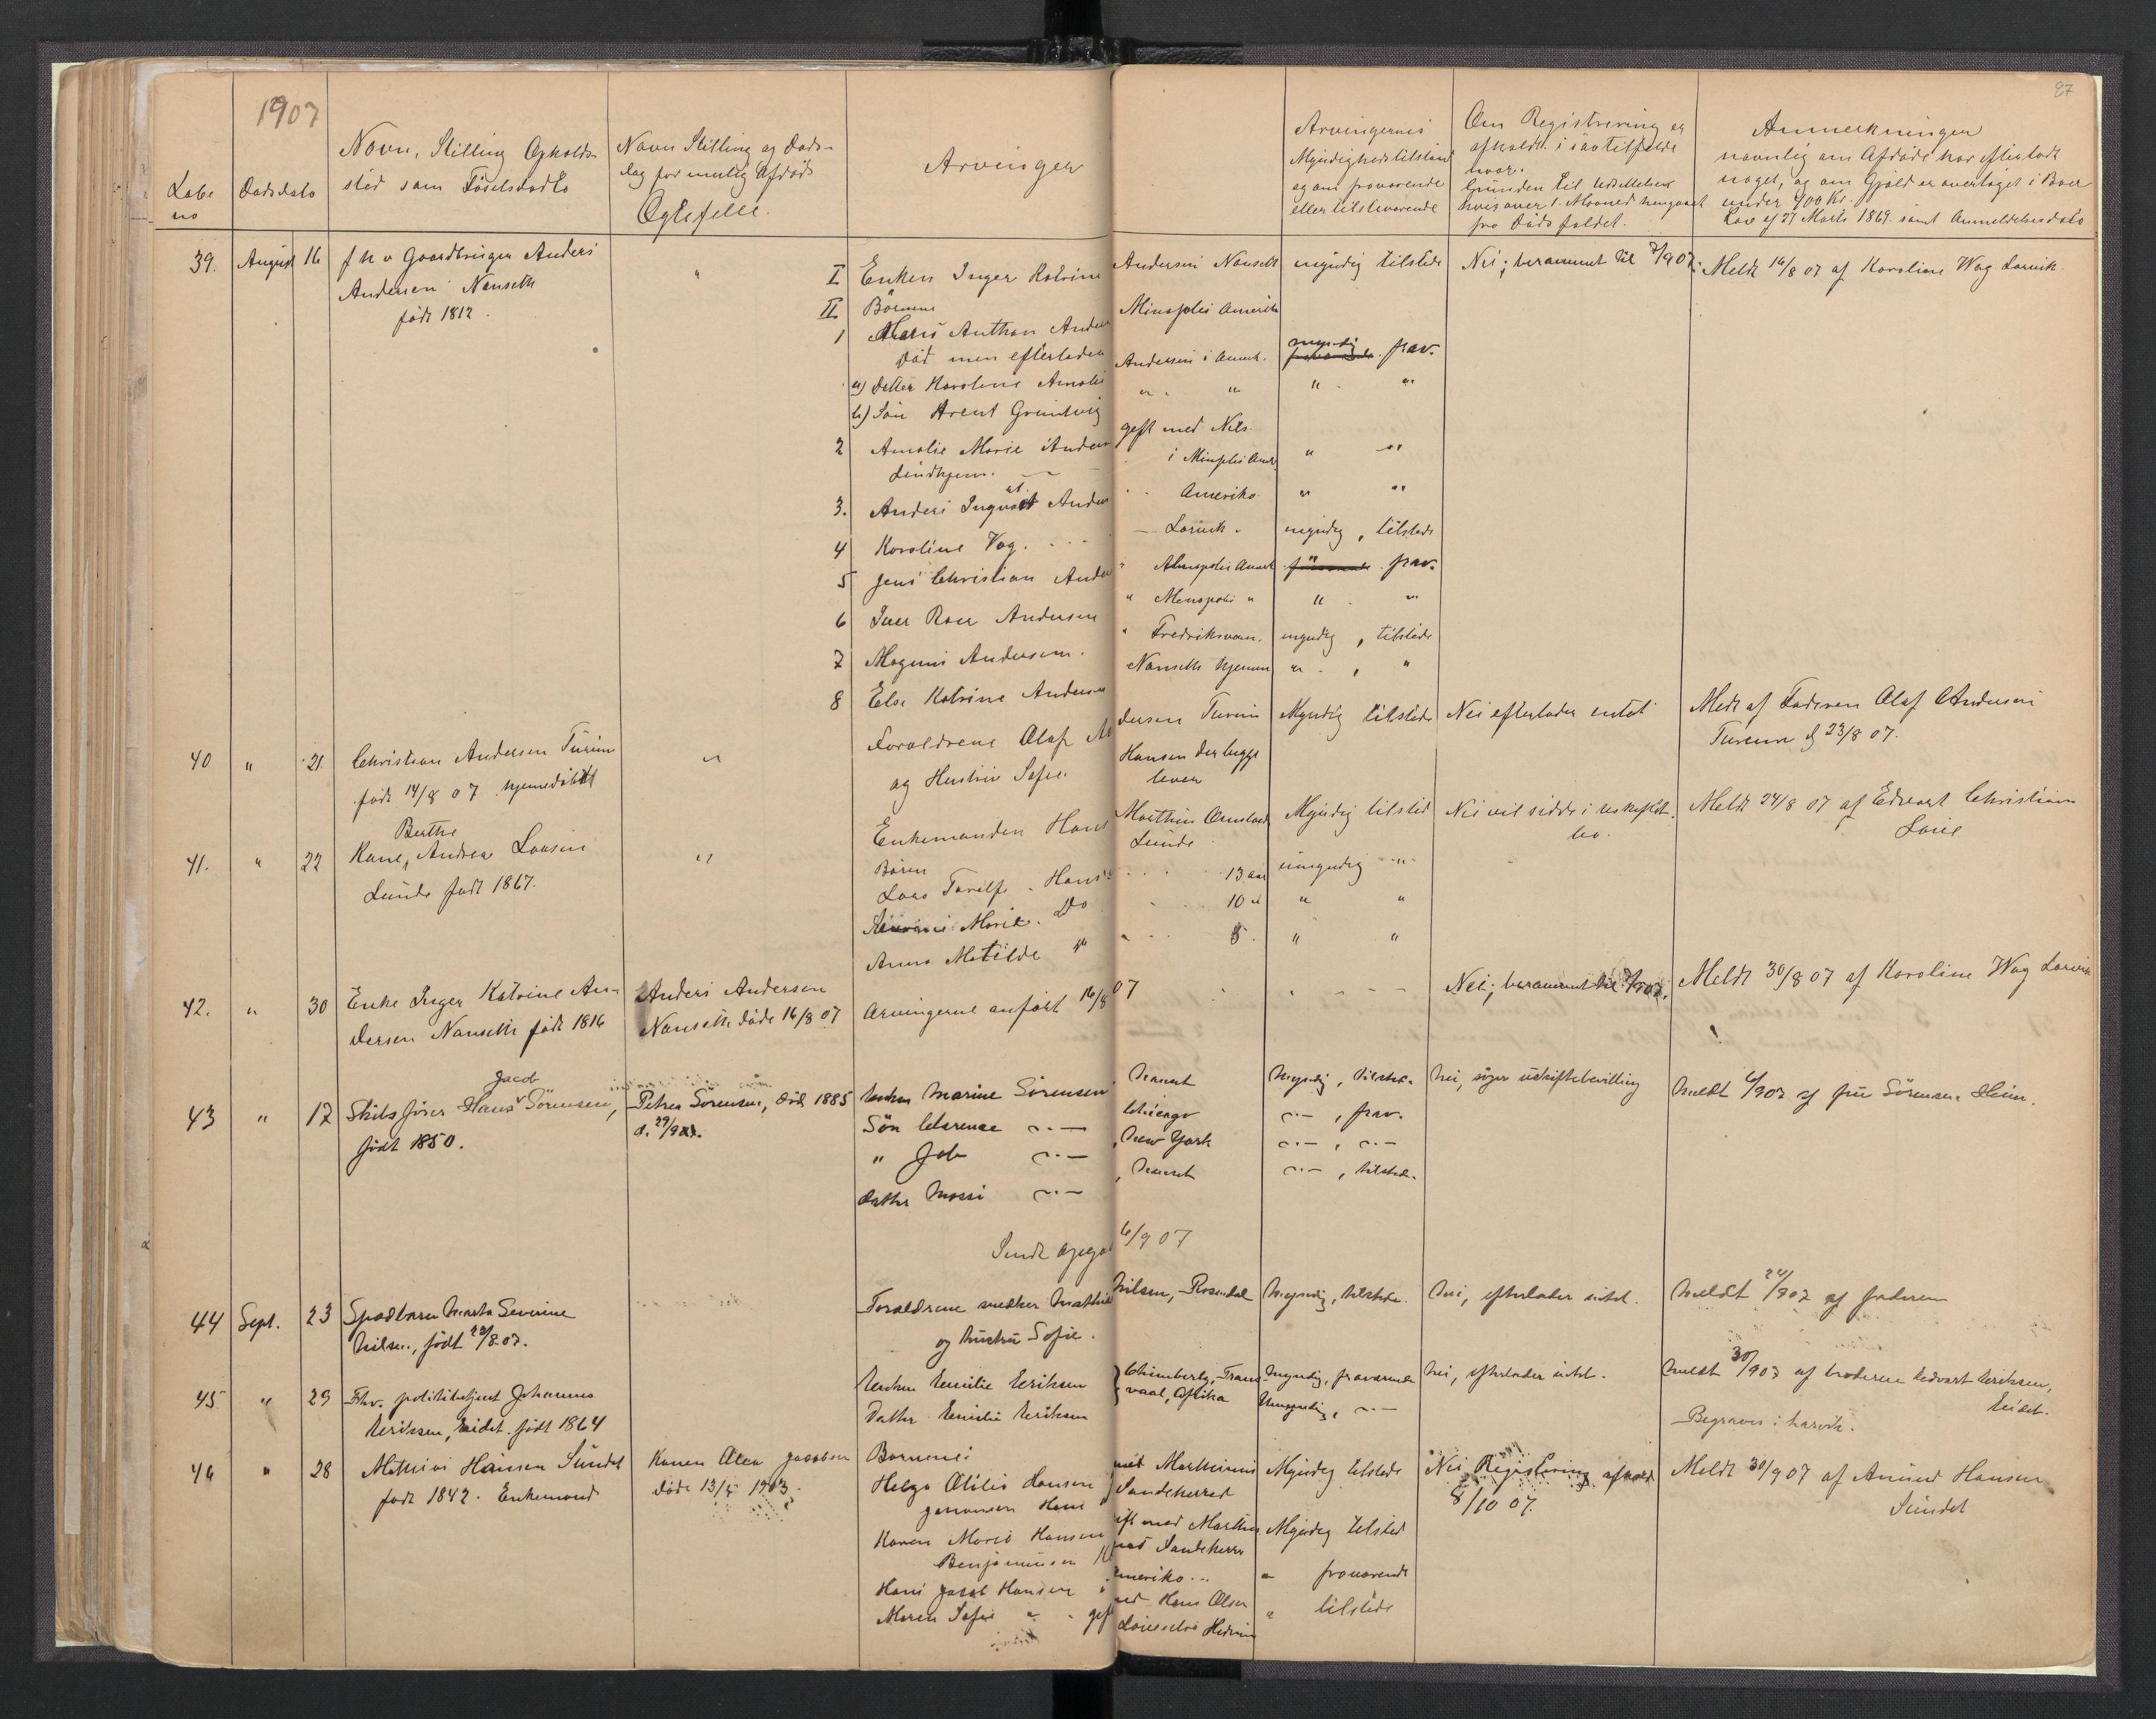 87
1907
Løbe no
Dødsdato
Navn, Stilling Opholds-
sted samt Fødselsdato
Navn Stilling og Døds-
dag for mulig Afdød
Ægtefelle.
Arvinger
Arvingernes
Myndighedstilstand
og om fraværende
eller tilstedeværende
Om Registrering er
afholdt i saa tilfælde
hvor.
Grunden til Udsettelsen
hvis over 1 Maaned hengaaet
fra Dødsfaldet.
Anmerkninger
navnlig om Afdøde har efterladt
noget, og om Gjæld er overtaget i Boer
under 400 Kr.
Lov af 27 Marts 1869. samt Anmeldelsesdato
39. August 16 f h v Gaardbruger Anders
Andersen Nanseth
født 1812.
"
I Enken Inger Katrine Andersen Nanseth myndig tilstede
Nei; berammet til 7/907.
Meldt 16/8 07 af Karoline Wag Larvik
II Børnene
1 Hans Anthon Ander Minoplis Amerika
død men efterlader
a) datter Karoline Amalie Andersen i Amerk. myndig frav.
b) Søn Arent Gruntvig " " " "
2 Amalie Marie Ander gift med Nils
Lindhjem. i Minoplis Amrk " "
3. Anders Ingvart Ander Amerika " "
4 Karoline Vog. Larvik. myndig, tilstede
5 Jens Christian Ander Minopolis Amerk " frav.
6 Iver Roer Andersen " Menopolis " " "
7 Magnus Andersen. " Fredriksværn. myndig, tilstede
8 Else Katrine Andersen Nanseth hjemme " , "
40 " 21 Christian Andersen Turim
født 14/8 07 hjemmedøbt
"
Forældrene Olaf Andersen Turim
og Hustru Sofie Hansen der begge
lever
Myndig tilstede
Nei efterlader intet
Meldt af Faderen Olaf Andersen
Turim d 23/8 07.
41. " 22 Berthe
Kone, Andrea Larsen
Lunde født 1867.
"
Enkemanden Hans Marthin Amslad
Lunde
Myndig tilsted
Nei vil sidde i uskiftet
bo.
Meldt 24/8 07 af Edvart Christian
Løvie
Børn
Lars Torolf. Hans 13 aar umyndig "
Marie. Do 10 " " "
Anna Matilde " 8. " "
42. " 30 Enke Inger Katrine An-
dersen Nanseth født 1816
Anders Andersen
Nanseth døde 16/8 07
Arvingerne anført 16/8 07
Nei; berammet til 7/907.
Meldt 30/8 07 af Karoline Wag Larvik
43 " 17 Skibsfører Hans Jacob Sørensen,
født 1850.
Petrea Sørensen, død 1885
d. 29/9
Enken Marine Sørensen Nanset Myndig, tilstede.
Nei, søger uskiftebevilling
Meldt 6/907 af fru Sørensen Heim.
Søn Clarence —"— Chicago —"—, frav.
" Job —"— , New York —"—, —"—
datter Mossi —"— , Nanset —"—, tilstede.
Sendt opgave 6/9 07
44 Sept. 23 Spædbarn Marta Severine
Nilsen, født 22/8 07.
Forældrene snedker Mathias Nilsen, Rosendal
og hustru Sofie.
Myndig, tilstede.
Nei, efterlader intet.
Meldt 24/907 af faderen
45 " 29 Fhv. politibetjent Johannes
Eriksen, Eidet. født 1864
Enken Emilie Eriksen
Datter Emilie Eriksen
Kimberly, Trans-
vaal, Afrika
Myndig, fraværende
Umyndig, —"—
Nei, efterlader intet.
Meldt 30/907 af broderen Edvart Eriksen,
Eidet.
Begraves i Larvik.
46 " 28 Mathias Hansen Sundet
født 1842. Enkemand
Karen Olea Jacobsen
døde 13/5 1903.
Børnene:
Helga Otilie Hansen
Sandeherred
Myndig tilstede
Nei Registrering afhold
8/10 07.
Meldt 30/9 07 af Anund Hansen
Sundet
Karen Marie Hansen gift med Martin
Benjaminsen Sandeherr
Myndig tilsted
Hans Jacob Hansen Amerika " fraværende
Maren Sofie " gift med Hans Olsen
Hedrum
" tilstede